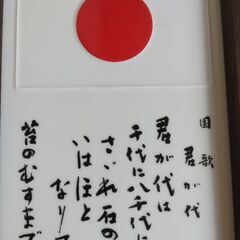 国歌 君が代
君が代は
千代に八千代に
さざれ石の
いはほと
なりて
苔のむすまで